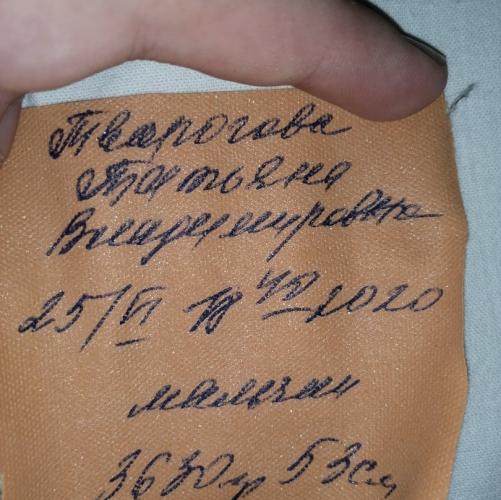 Тварогова
Татьяна
Владимировна
25/VI 19 40 2020
мальчик
3630гр 53см